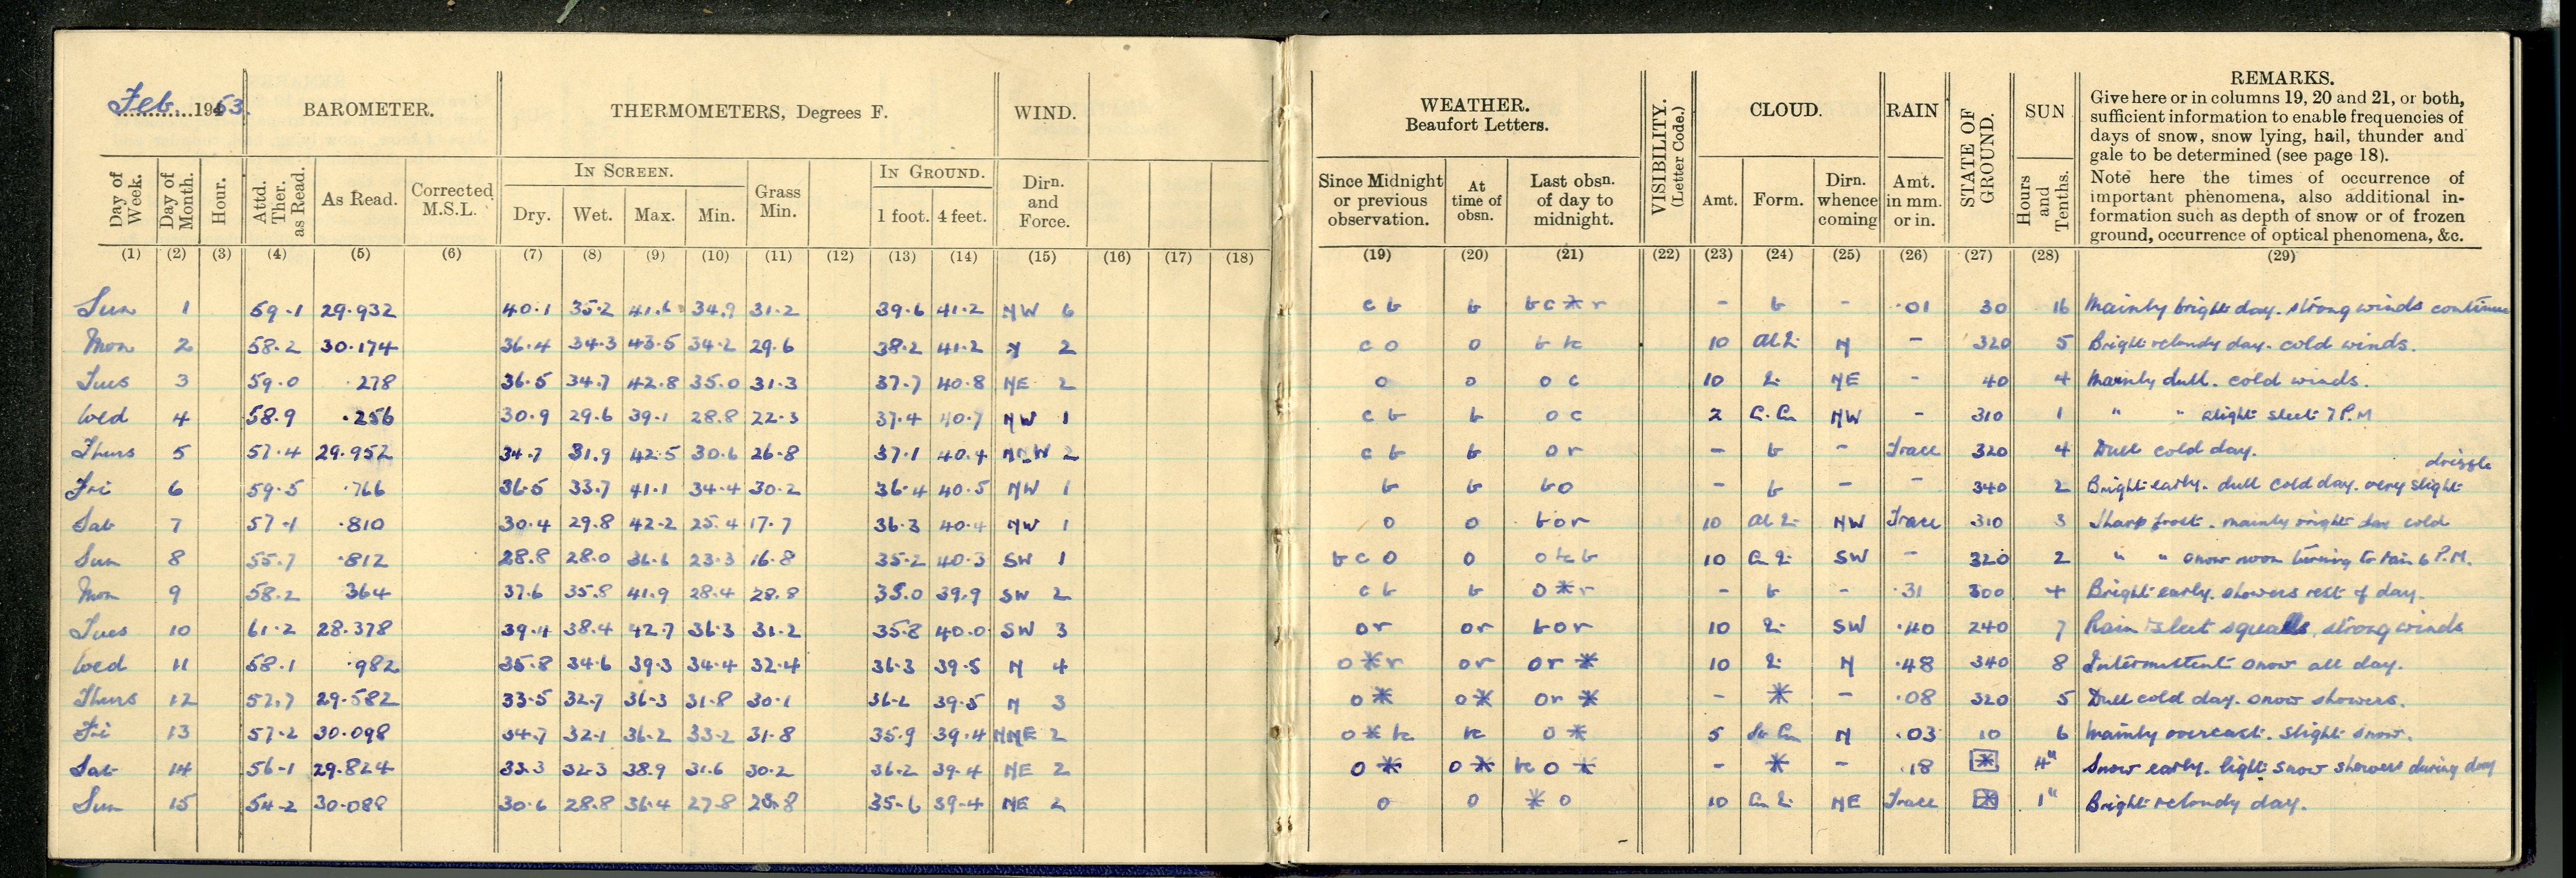 Feb. 1953.
BAROMETER.
THERMOMETERS, Degrees F.
WIND.
WEATHER.
Beaufort Letters.
VISIBILITY.
(Letter Code.)
CLOUD.
RAIN
STATE OF GROUND.
SUN
REMARKS.
Give here or in columns 19, 20 and 21, or both,
sufficient information to enable frequencies of
days of snow, snow lying, hail, thunder and
gale to be determined (see page 18).
Note here the times of occurrence of
important phenomena, also additional in-
formation such as depth of snow or of frozen
ground, occurrence of optical phenomena, &c.
Day of Week.
Day of Month.
Hour.
Attd. Ther. as Read.
As Read.
Corrected M.S.L.
IN SCREEN.
Dry. Wet. Max. Min.
Grass Min.
IN GROUND.
1 foot. 4 feet.
Dirn. and Force.
Since Midnight or previous observation.
At time of obsn.
Last obsn. of day to midnight.
Amt. Form. Dirn. whence coming
Amt. in mm. or in.
Hours and Tenths.
(1) (2) (3) (4) (5) (6) (7) (8) (9) (10) (11) (12) (13) (14) (15) (16) (17) (18) (19) (20) (21) (22) (23) (24) (25) (26) (27) (28) (29)
Sun 1 59.1 29.932 40.1 35.2 41.6 34.9 31.2 39.6 41.2 NW 6 c b b bc*r - b - .01 30 16 Mainly bright day. strong winds continue
Mon 2 58.2 30.174 36.4 34.3 43.5 34.2 29.6 38.2 41.2 N 2 c o o 10 N - 320 5 Bright day. cold winds.
Tues 3 59.0 .278 36.5 34.7 42.8 35.0 31.3 37.7 40.8 NE 2 o o o c 10 NE - 40 4 Mainly dull. cold winds.
Wed 4 58.9 .256 30.9 29.6 39.1 28.8 22.3 37.4 40.7 NW 1 c b b o c 2 NW - 310 1 " " slight sleet 7 P.M
Thurs 5 57.4 29.952 34.7 31.9 42.5 30.6 26.8 37.1 40.4 NNW 2 c b b o r - b - Trace 320 4 Dull cold day.
Fri 6 59.5 .766 36.5 33.7 41.1 34.4 30.2 36.4 40.5 NW 1 b b bo - b - - 340 2 Bright early. dull cold day. very slight drizzle
Sat 7 57.1 .810 30.4 29.8 42.2 25.4 17.7 36.3 40.4 NW 1 o o bor 10 NW Trace 310 3 Sharp frost. mainly bright day cold
Sun 8 55.7 .812 28.8 28.0 36.6 23.3 16.8 35.2 40.3 SW 1 b c o o 10 SW - 320 2 " " snow noon turning to rain 6 P.M.
Mon 9 58.2 .364 37.6 35.8 41.9 28.4 28.8 35.0 39.9 SW 2 c b b o*r - b - .31 300 4 Bright early. showers rest of day.
Tues 10 61.2 28.378 39.4 38.4 42.7 36.3 31.2 35.8 40.0 SW 3 or or bor 10 SW .40 240 7 Rain sleet squalls, strong winds
Wed 11 58.1 .982 35.8 34.6 39.3 34.4 32.4 36.3 39.5 N 4 o*r or or * 10 N .48 340 8 Intermittent snow all day.
Thurs 12 57.7 29.582 33.5 32.7 36.3 31.8 30.1 36.2 39.5 N 3 o* o* or * - * - .08 320 5 Dull cold day. snow showers.
Fri 13 57.2 30.098 34.7 32.1 36.2 33.2 31.8 35.9 39.4 NNE 2 o* o * 5 N .03 10 6 Mainly overcast. slight snow.
Sat 14 56.1 29.824 33.3 32.3 38.9 31.6 30.2 36.2 39.4 NE 2 o * o * o * - * - .18 * 4" Snow early. light snow showers during day
Sun 15 54.2 30.088 30.6 28.8 36.4 27.8 23.8 35.6 39.4 NE 2 o o * o 10 NE Trace * 1" Bright day.